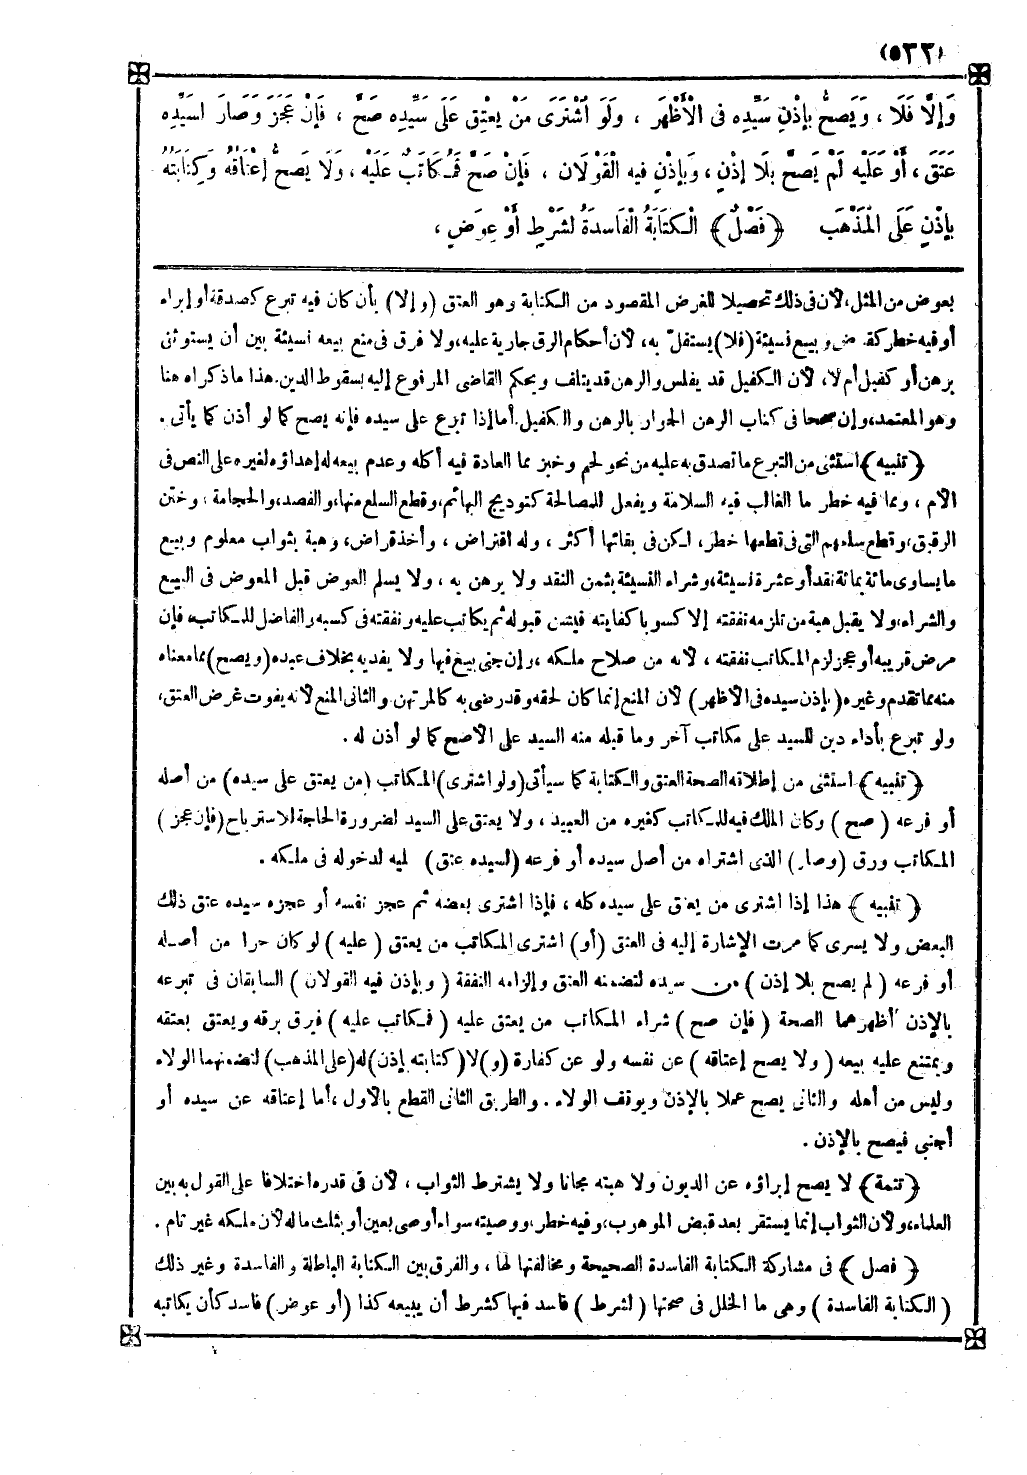 (٥٣٢)
وَإِلَّا فَلَا ، وَيَصحُّ بِإِذْنِ سَيِّدِهِ فى الْأَظْهَرِ ، وَلَوَ اشْتَرَى مَنْ يَعْتِق عَلَى سَيِّدِه صَحَّ ، فَإِنْ عَجَزَ وَصَارَ لسَيِّدِه
عَتَقَ ، أَوْ عَلَيْه لَمْ يَصحَّ بِلَا إِذْنٍ ، وَبِإِذْنٍ فيه الْقَوْلَان ، فَإِنْ صَحَّ فَمُـكَاتَبٌ عَلَيْه ، وَلَا يَصحُّ إِعْتَاقُهُ وَكِتَابَتُهُ
بِإِذْنٍ عَلَى الْمَذْهَب ﴿ فَصْلٌ ﴾ الْـكتَابَةُ الْفَاسدَةُ لشَرْطٍ أَوْ عِوَضٍ ،
بعوض من المثل ، لأن فى ذلك تحصيلا للغرض المقصود من الـكتابة وهو العتق (وإلا) بأن كان فيه تبرع كصدقة أو إبراء
أو فيه خطر كقرض وبيع نسيئة (فلا) يستقل به ، لأن أحكام الرق جارية عليه ، ولا فرق فى منع بيعه نسيئة بين أن يستوثق
برهن أو كفيل أم لا ، لأن الـكفيل قد يفلس والرهن قد يتلف ويحكم القاضى المرفوع إليه بسقوط الدين . هذا ماذكراه هنا
وهو المعتمد ، وإن صححا فى كتاب الرهن الجواز بالرهن والـكفيل . أما إذا تبرع على سيده فإنه يصح كما لو أذن كما يأتى .
﴿ تنبيه ﴾ استثنى من التبرع ماتصدق به عليه من نحو لحم وخبز مما العادة فيه أكله وعدم بيعه له إهداؤه لغيره على النص فى
الأم ، ومما فيه خطر ما الغالب فيه السلامة ويفعل للمصالحة كتوديج البهائم ، وقطع السلع منها ، والفصد ، والحجامة ، وختن
الرقيق ، وقطع سلعهم التى فى قطعها خطر ، لـكن فى بقائها أكثر ، وله اقتراض ، وأخذ قراض ، وهبة بثواب معلوم وبيع
مايساوى مائة بمائة نقدا وعشرة نسيئة ، وشراء النسيئة بثمن النقد ولا يرهن به ، ولا يسلم العوض قبل المعوض فى البيع
والشراء ، ولا يقبل هبة من تلزمه نفقته إلا كسوبا كفايته فيسن قبوله ثم يكاتب عليه ونفقته فى كسبه والفاضل للمـكاتب ، فإن
مرض قريبه أو عجز لزم المـكاتب نفقته ، لأنه من صلاح ملـكه ، وإن جنى بيع فيها ولا يفديه بخلاف عبده (ويصح) بما معناه
منه مما تقدم وغيره ( بإذن سيده فى الأظهر ) لأن المنع إنما كان لحقه وقد رضى به كالمرتهن . والثانى المنع لأنه يفوت غرض العتق ،
ولو تبرع بأداء دين للسيد على مكاتب آخر وما قبله منه السيد على الأصح كما لو أذن له .
﴿ تنبيه ﴾ استثنى من إطلاقه الصحة العتق والـكتابة كما سيأتى (ولو اشترى) المـكاتب (من يعتق على سيده) من أصله
أو فرعه ( صح ) وكان الملك فيه للمـكاتب كغيره من العبيد ، ولا يعتق على السيد لضرورة الحاجة للاسترباح (فإن عجز )
المـكاتب ورق (وصار) الذى اشتراه من أصل سيده أو فرعه (لسيده عتق) عليه لدخوله فى ملـكه .
﴿ تنبيه ﴾ هذا إذا اشترى من يعتق على سيده كله ، فإذا اشترى بعضه ثم عجز نفسه أو عجزه سيده عتق ذلك
البعض ولا يسرى كما مرت الإشارة إليه فى العتق (أو) اشترى المـكاتب من يعتق ( عليه ) لو كان حرا من أصله
أو فرعه ( لم يصح بلا إذن ) من سيده لتضمنه العتق وإلزامه النفقة ( وبإذن فيه القولان ) السابقان فى تبرعه
بالإذن أظهرهما الصحة ( فإن صح ) شراء المـكاتب من يعتق عليه ( فمـكاتب عليه ) فيرق برقه ويعتق بعتقه
ويمتنع عليه بيعه ( ولا يصح إعتاقه ) عن نفسه ولو عن كفارة (و) لا (كتابته بإذن) له (على المذهب) لتضمنهما الولاء
وليس من أهله والثانى يصح عملا بالإذن ويوقف الولاء . والطريق الثانى القطع بالأول ، أما إعتاقه عن سيده أو
أجنبى فيصح بالإذن .
﴿ تتمة ﴾ لا يصح إبراؤه عن الديون ولا هبته مجانا ولا يشترط الثواب ، لأن فى قدره اختلافا على القول به بين
العلماء ، ولأن الثواب إنما يستقر بعد قبض الموهوب ، وفيه خطر ، ووصيته سواء أوصى بعين أو بثلث ماله لأن ملـكه غير تام .
﴿ فصل ﴾ فى مشاركة الـكتابة الفاسدة الصحيحة ومخالفتها لها ، والفرق بين الـكتابة الباطلة والفاسدة وغير ذلك
( الـكتابة الفاسدة ) وهى ما الخلل فى صحتها ( لشرط ) فاسد فيها كشرط أن يبيعه كذا (أو عوض) فاسد كأن يكاتبه